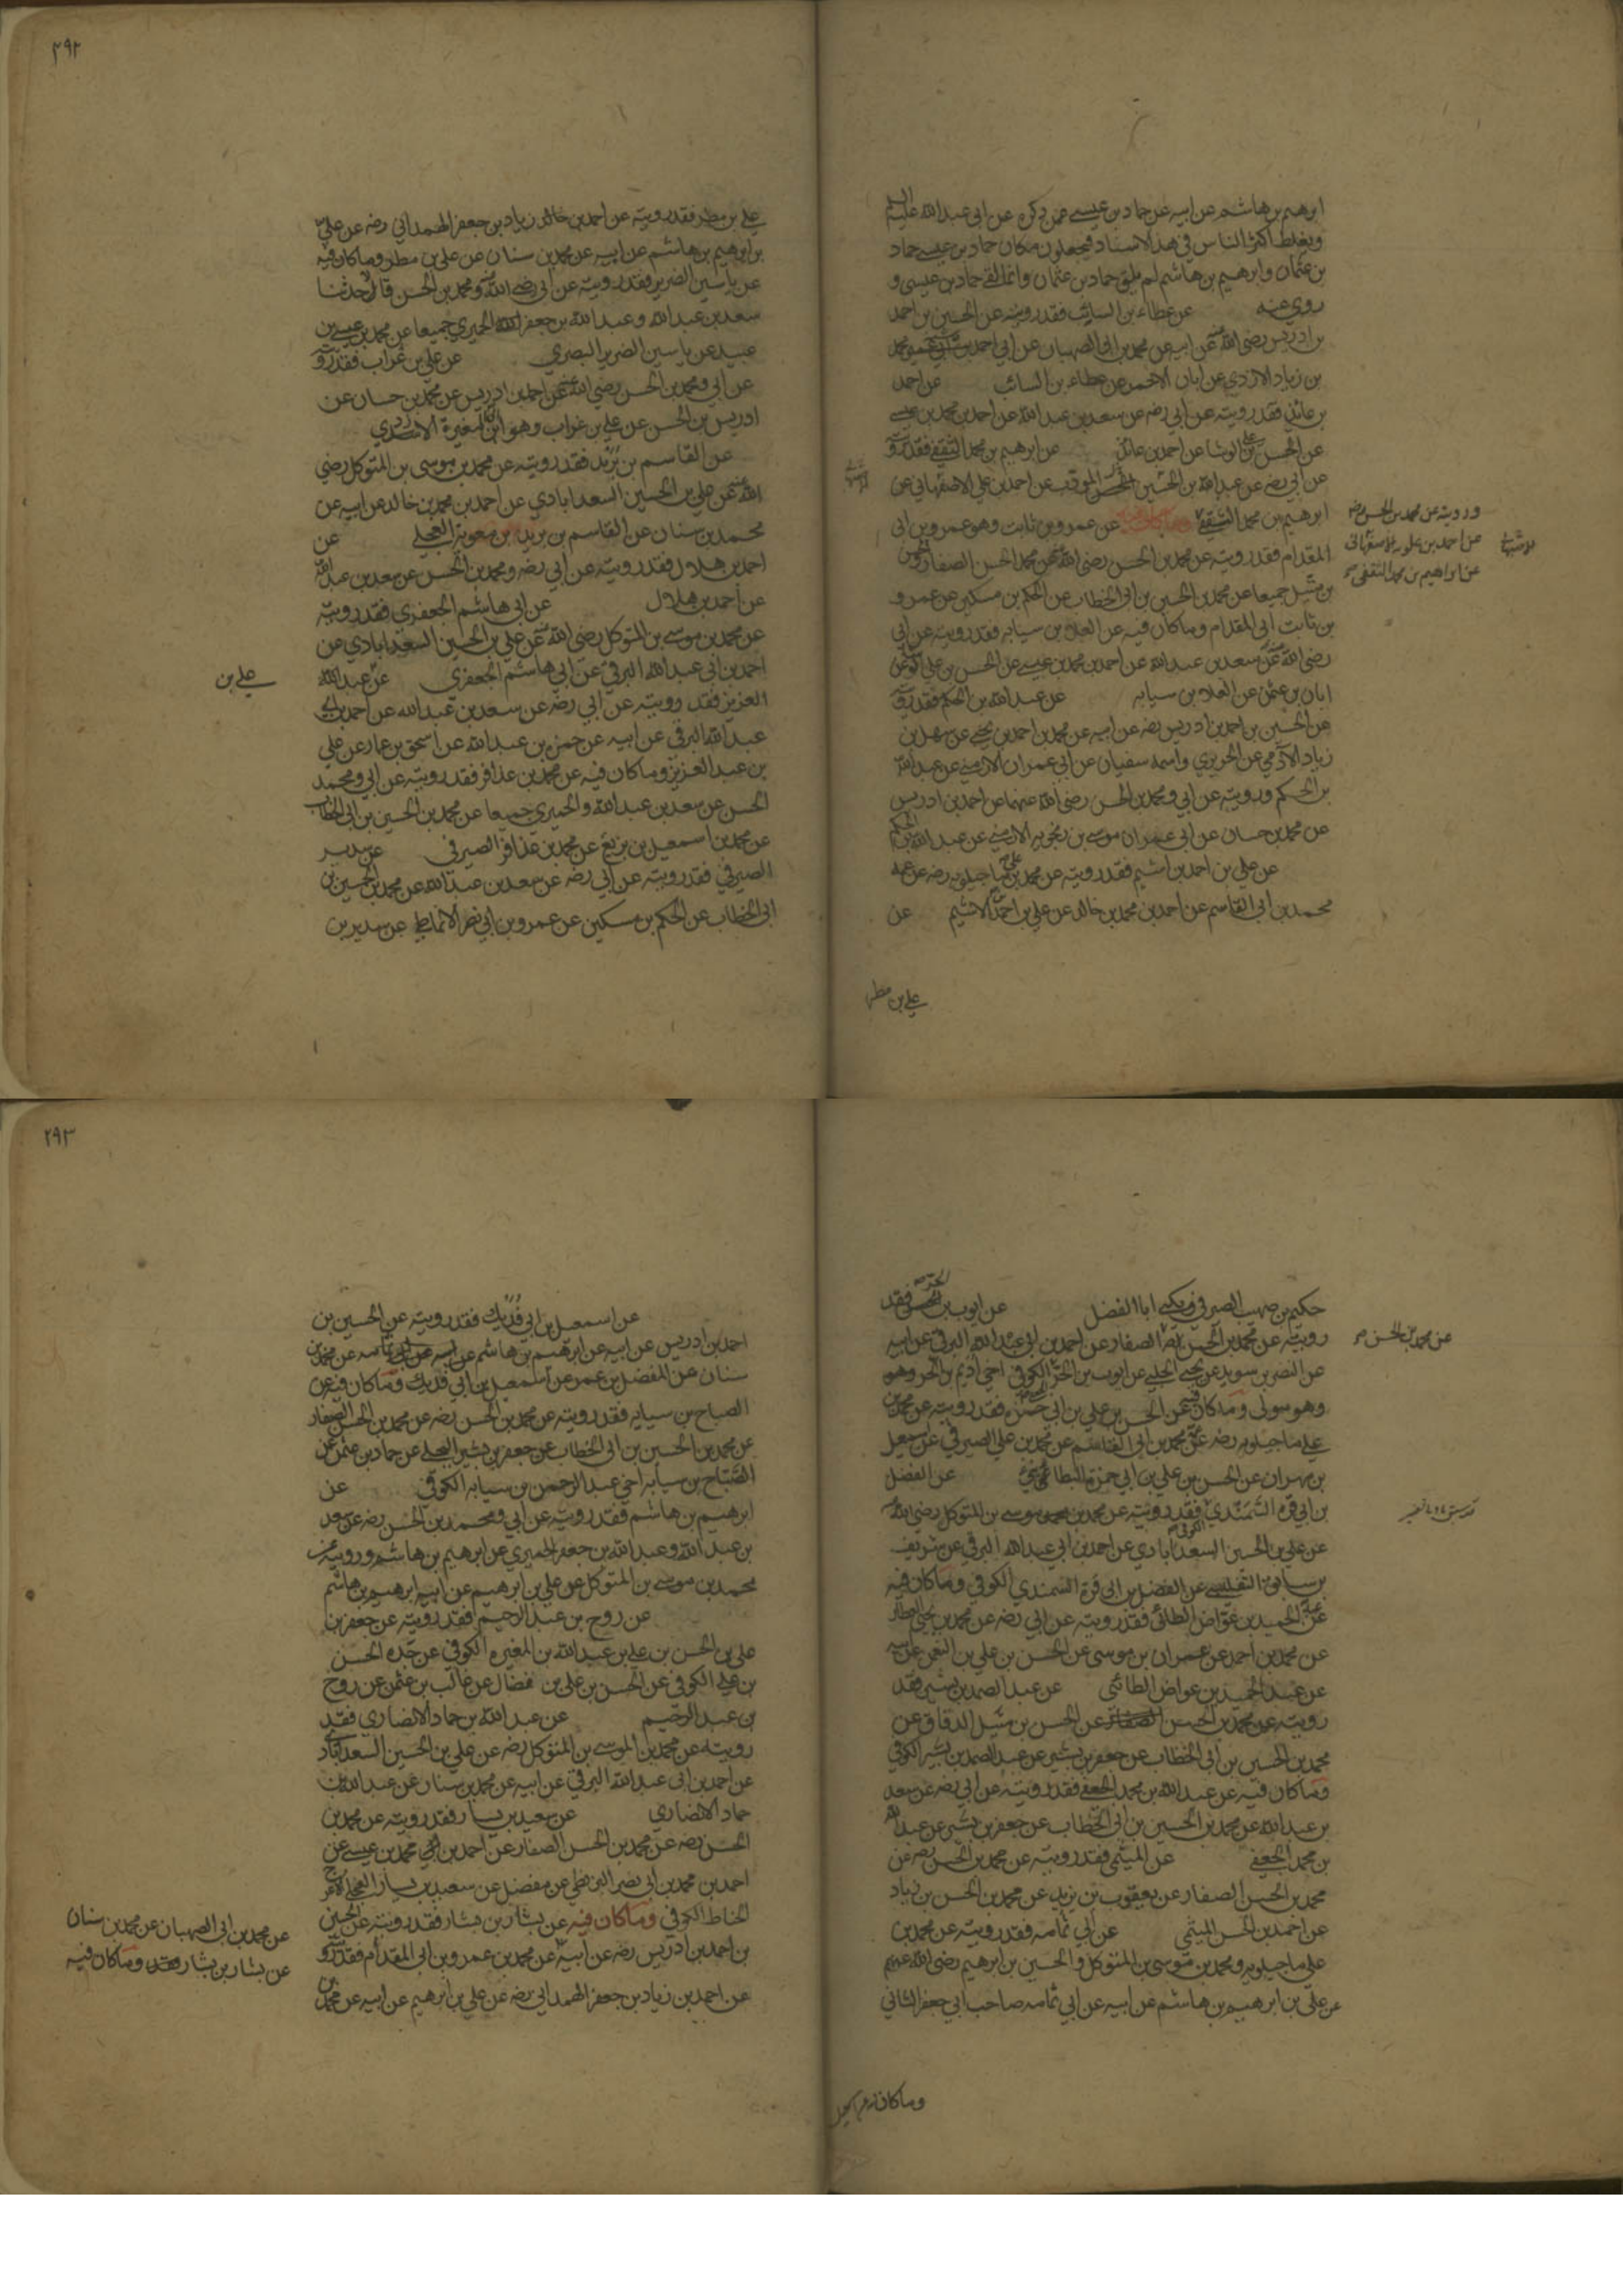 ابرهيم بن هاشم عن ابيه عن حماد بن عيسى عمن ذكره عن ابي عبد الله عليه السلم
ويغلط اكثر الناس في هذا الاسناد فيجعلون مكان حماد بن عيسى حماد
بن عثمان وابرهيم بن هاشم لم يلق حماد بن عثمان وانما لقي حماد بن عيسى و
روى عنه عن عطاء بن السائب فقد رويته عن الحسين بن احمد
بن ادريس رضى الله عنه عن ابيه عن محمد بن ابى الصهبان عن ابي احمد محمد
بن زياد الازدي عن ابان الاحمر عن عطاء بن السائب عن احمد
بن عائذ فقد رويته عن ابي رضه عن سعد بن عبد الله عن احمد بن محمد بن عيسى
عن الحسن بن علي الوشا عن احمد بن عائذ عن ابرهيم بن محمد الثقفي فقد رويته
عن ابي رضه عن عبد الله بن الحسين المؤدب عن احمد بن علي الاصفهاني عن
ورويته عن محمد بن الحسن رضه
عن احمد بن علويه الاصفهانى
عن ابراهيم بن محمد الثقفى
ابرهيم بن محمد الثقفي عن عمرو بن ثابت وهو عمرو بن ابى
المقدام فقد رويته عن محمد بن الحسن رضى الله عنه عن محمد الحسن الصفار والحسن
بن متيل جميعا عن محمد بن الحسين بن ابى الخطاب عن الحكم بن مسكين عن عمرو
بن ثابت ابى المقدام وماكان فيه عن العلا بن سيابه فقد رويته عن ابي
رضى الله عنه عن سعد بن عبد الله عن احمد بن محمد بن عيسى عن الحسن بن علي الوشا عن
ابان بن عثمن عن العلا بن سيابه عن عبد الله بن الحكم فقد رويته
عن الحسين بن احمد بن ادريس رضه عن ابيه عن محمد بن احمد بن يحيى عن سهل بن
زياد الآدمي عن الحريري واسمه سفيان عن ابى عمران الارمنى عن عبد الله
بن الحكم ورويته عن ابي ومحمد بن الحسن رضى الله عنهما عن احمد بن ادريس
عن محمد بن حسان عن ابى عمران موسى بن رنجويه الارمنى عن عبد الله بن الحكم
عن علي بن احمد بن اشيم فقد رويته عن محمد بن علي ماجيلويه رضه عن عمه
محمد بن ابى القاسم عن احمد بن محمد بن خالد عن علي بن احمد الاشيم عن
علي بن مطر
٢٩٢
علي بن مطر فقد رويته عن احمد بن زياد بن جعفر الهمداني رضه عن علي
بن ابرهيم بن هاشم عن ابيه عن محمد بن سنان عن علي بن مطر وماكان فيه
عن ياسين الضرير فقد رويته عن ابى رضى الله عنه ومحمد بن الحسن قالا حدثنا
سعد بن عبد الله وعبد الله بن جعفر الحميري جميعا عن محمد بن عيسى بن
عبيد عن ياسين الضرير البصري عن علي بن غراب فقد رويته
عن ابي ومحمد بن الحسن رضى الله عنهما عن احمد بن ادريس عن محمد بن حسان عن
ادريس بن الحسن عن علي بن غراب وهو ابن المغيرة الازدي
عن القاسم بن بريد فقد رويته عن محمد بن موسى بن المتوكل رضى
الله عنه عن علي بن الحسين السعدابادي عن احمد بن محمد بن خالد عن ابيه عن
محمد بن سنان عن القاسم بن بريد بن معوية العجلي عن
احمد بن هلال فقد رويته عن ابي رضه ومحمد بن الحسن عن سعد بن عبد الله
عن احمد بن هلال عن ابى هاشم الجعفري فقد رويته
عن محمد بن موسى بن المتوكل رضى الله عنه عن علي بن الحسين السعدابادي عن
احمد بن ابى عبد الله البرقي عن ابي هاشم الجعفري عن عبد الله
علي بن
العزيز فقد رويته عن ابي رضه عن سعد بن عبد الله عن احمد بن ابى
عبد الله البرقي عن ابيه عن حمزه بن عبد الله عن اسحق بن عمار عن علي
بن عبد العزيز وماكان فيه عن محمد بن عذافر فقد رويته عن ابي ومحمد
الحسن عن سعد بن عبد الله والحميري جميعا عن محمد بن الحسين بن ابى الخطاب
عن محمد بن اسمعيل بن بزيع عن محمد بن عذافر الصيرفي عن سدير
الصيرفي فقد رويته عن ابي رضه عن سعد بن عبد الله عن محمد بن الحسين بن
ابى الخطاب عن الحكم بن مسكين عن عمرو بن ابي نصر الانماطي عن سدير بن
حكيم بن صهيب الصيرفي ويكنى ابا الفضل عن ايوب بن الحر فقد
رويته عن محمد بن الحسن رضه الصفار عن احمد بن ابى عبد الله البرقي عن ابيه
عن محمد بن الحسن صح
عن النضر بن سويد عن يحيى الحلبي عن ايوب بن الحر الكوفي اخى اديم بن الحر وهو
وهو مولى وماكان فيه عن الحسن بن علي بن ابى حمزة فقد رويته عن محمد بن
علي ماجيلويه رضه عن محمد بن ابى القاسم عن محمد بن علي الصيرفي عن اسمعيل
بن مهران عن الحسن بن علي بن ابي حمزة البطائنى عن الفضل
بن ابي قره السمندي فقد رويته عن محمد بن موسى بن المتوكل رضى الله عنه
عن علي بن الحسين السعدابادي عن احمد بن ابي عبد الله البرقي عن شريف
بن سابق التفليسى عن الفضل بن ابى قرة السمندي الكوفي وماكان فيه
عن عبد الحميد بن عواض الطائى فقد رويته عن ابي رضه عن محمد بن يحيى العطار
عن محمد بن احمد عن عمران بن موسى عن الحسن بن علي بن النعمن عن ابيه
عن عبد الحميد بن عواض الطائى عن عبد الصمد بن بشير فقد
رويته عن محمد بن الحسن الصفار عن الحسن بن متيل الدقاق عن
محمد بن الحسين بن ابى الخطاب عن جعفر بن بشير عن عبد الصمد بن بشير الكوفي
وماكان فيه عن عبد الله بن محمد الجعفي فقد رويته عن ابي رضه عن سعد
بن عبد الله عن محمد بن الحسين بن ابى الخطاب عن جعفر بن بشير عن عبد الله
بن محمد الجعفي عن الميثمى فقد رويته عن محمد بن الحسن رضه عن
محمد بن الحسن الصفار عن يعقوب بن يزيد عن محمد بن الحسن بن زياد
عن احمد بن الحسن الميثمى عن ابي ثمامه فقد رويته عن محمد بن
علي ماجيلويه ومحمد بن موسى بن المتوكل والحسين بن ابرهيم رضى الله عنهم
عن علي بن ابرهيم بن هاشم عن ابيه عن ابي ثمامه صاحب ابي جعفر الثاني
وماكان فيه عن اسمعيل
٢٩٣
عن اسمعيل بن ابي فديك فقد رويته عن الحسين بن
احمد بن ادريس عن ابيه عن ابرهيم بن هاشم عن محمد بن
سنان عن المفضل بن عمر عن اسمعيل بن ابي فديك وماكان فيه عن
الصباح بن سيابه فقد رويته عن محمد بن الحسن رضه عن محمد بن الحسن الصفار
عن محمد بن الحسين بن ابى الخطاب عن جعفر بن بشير البجلي عن حماد بن عثمن عن
الصباح بن سيابه اخى عبد الرحمن بن سيابه الكوفي عن
ابرهيم بن هاشم فقد رويته عن ابي ومحمد بن الحسن رضه عن سعد
بن عبد الله وعبد الله بن جعفر الحميري عن ابرهيم بن هاشم ورويته عن
محمد بن موسى بن المتوكل عن علي بن ابرهيم عن ابيه ابرهيم بن هاشم
عن روح بن عبد الرحيم فقد رويته عن جعفر بن
علي بن الحسن بن علي بن عبد الله بن المغيره الكوفي عن جده الحسن
بن علي الكوفي عن الحسن بن علي بن فضال عن غالب بن عثمن عن روح
بن عبد الرحيم عن عبد الله بن حماد الانصاري فقد
رويته عن محمد بن موسى بن المتوكل رضه عن علي بن الحسين السعدآبادى
عن احمد بن ابى عبد الله البرقي عن ابيه عن محمد بن سنان عن عبد الله بن
حماد الانصاري عن سعيد بن يسار فقد رويته عن محمد بن
الحسن رضه عن محمد بن الحسن الصفار عن احمد بن محمد بن عيسى عن
احمد بن محمد بن ابي نصر البزنطي عن مفضل عن سعيد بن يسار العجلي الاعرج
الحناط الكوفي وماكان فيه عن بشار بن بشار فقد رويته عن الحسين
بن احمد بن ادريس رضه عن ابيه عن محمد بن عمرو بن ابى المقدام فقد رويته
عن محمد بن ابى الصهبان عن محمد بن سنان
عن بشار بن بشار وماكان فيه
عن احمد بن زياد بن جعفر الهمداني رضه عن علي بن ابرهيم عن ابيه عن محمد بن